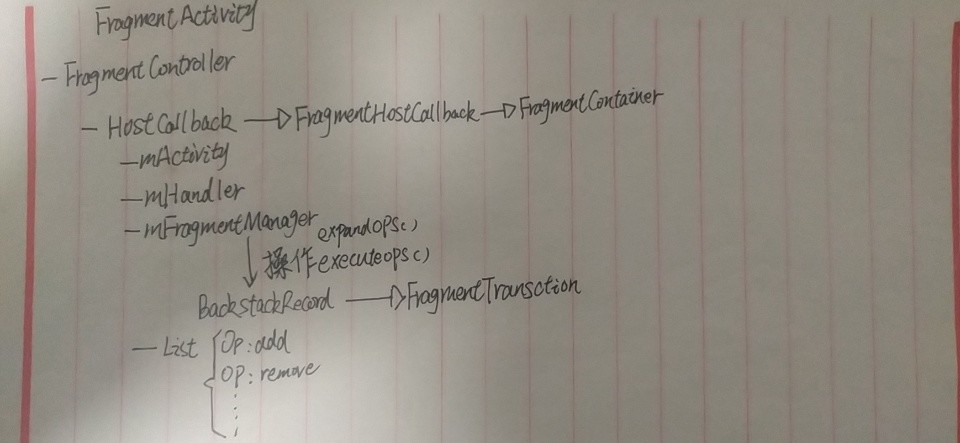 FragmentActivity
— FragmentController
— HostCallback —▷ FragmentHostCallback —▷ FragmentContainer
— mActivity
— mHandler
— mFragmentManager expandOPS()
↓ 操作 executeops()
BackstackRecord —▷ FragmentTransction
— List { Op: add
OP: remove
⋮